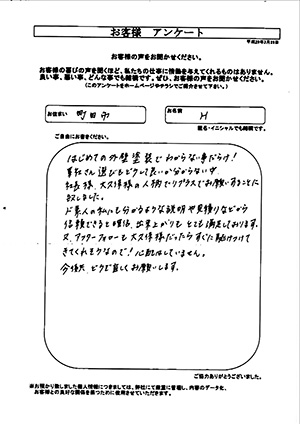 お客様 アンケート
お客様の声をお聞かせください。
お客様の喜びの声を聞くほど、私たちの仕事に情熱を与えてくれるものはありません。
良い事、悪い事、どんな事でも結構です。ぜひ、お客様の声をお聞かせください。
(このアンケートをホームページやチラシでご紹介させて下さい。)
お住まい 町田市
お名前 H
匿名・イニシャルでも結構です。
ご自由にお書きください。
はじめての外壁塗装でわからない事だらけ!
業社さん選びもどうして良いか分からない中
社長様、大久保様の人柄でリプラスでお願いすることに
致しました。
ド素人の私にも分かるような説明や見積りなどから
信頼できると確信、出来上がりも とても満足しております。
又、アフターフォローも大久保様だったらすぐに駆けつけて
きてくれそうなので!心配はしていません。
今後共 どうぞ宜しくお願いします。
ご協力ありがとうございました。
※お預かり致しました個人情報につきましては、弊社にて厳重に管理し、内容のデータ化、
お客様との良好な関係を築つために使用させていただきます。